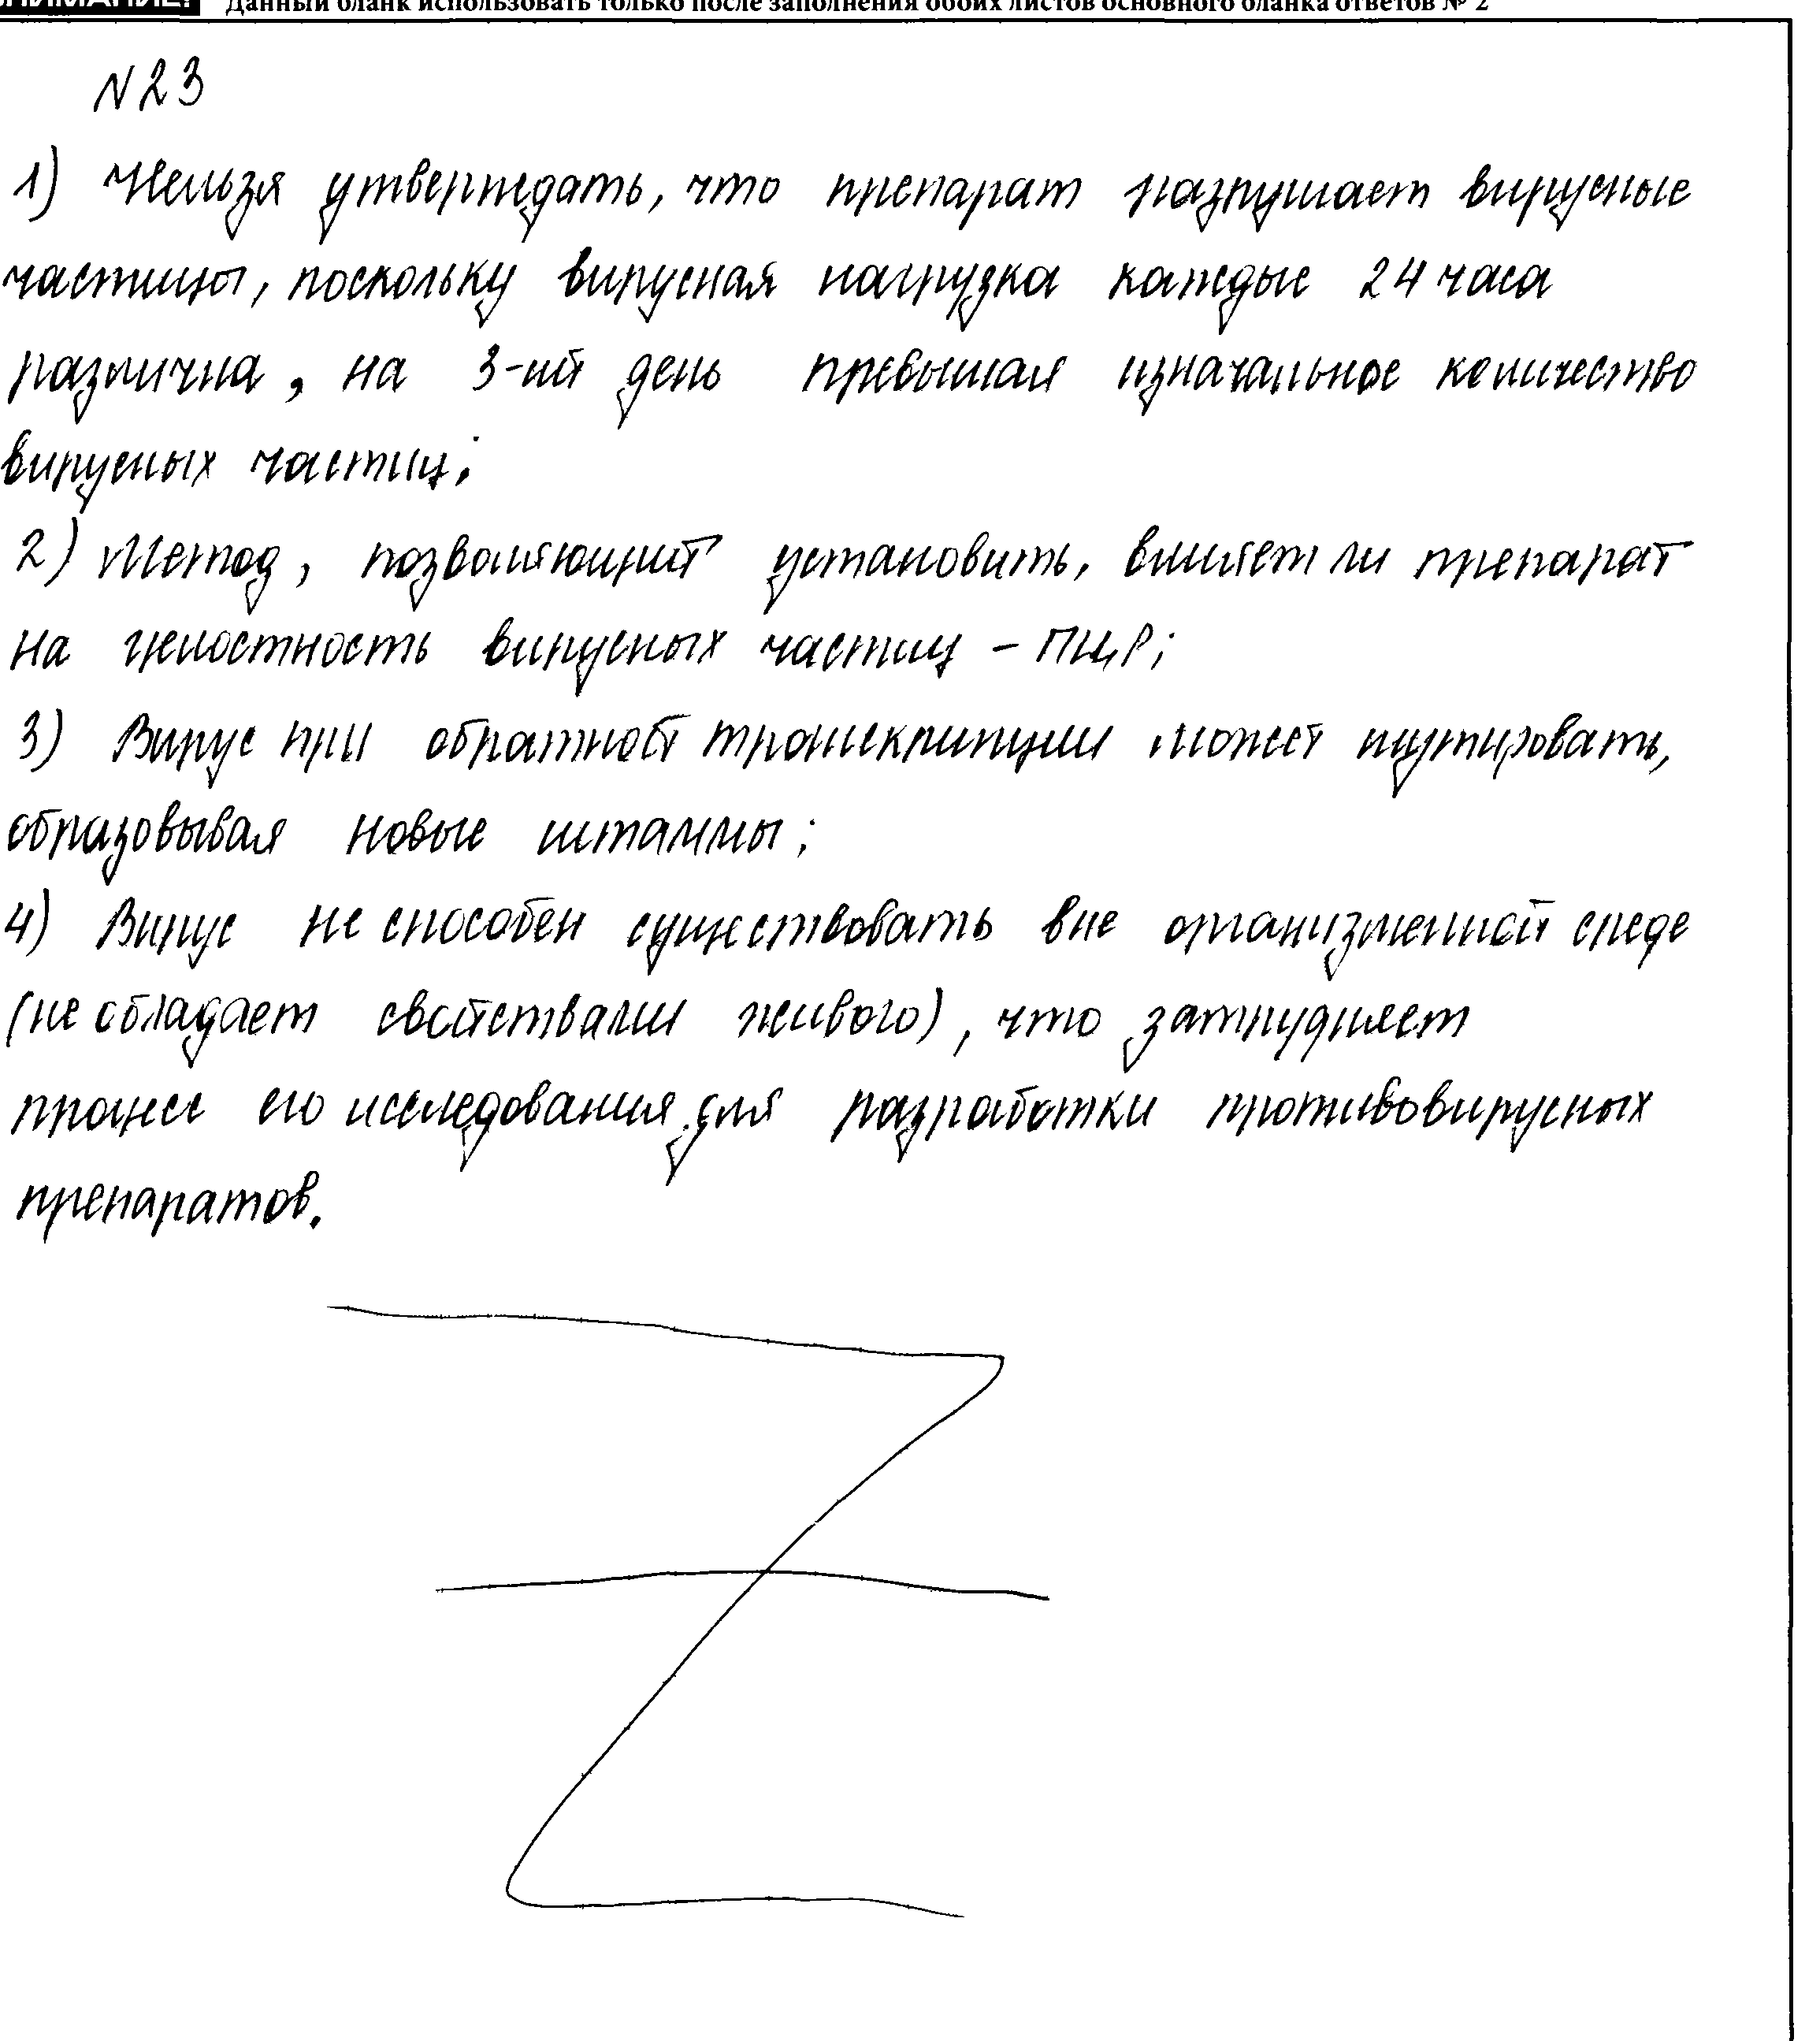 ВНИМАНИЕ! Данный бланк использовать только после заполнения обоих листов основного бланка ответов № 2
N23
1) Нельзя утверждать, что препарат разрушает вирусные
частицы, поскольку вирусная нагрузка каждые 24 часа
различна, на 3-ий день превышая изначальное количество
вирусных частиц;
2) Метод, позволяющий установить, влияет ли препарат
на целостность вирусных частиц – ПЦР;
3) Вирус при обратной транскрипции может мутировать,
образовывая новые штаммы;
4) Вирус не способен существовать вне организменной среде
(не обладает свойствами живого), что затрудняет
процесс его исследования для разработки противовирусных
препаратов.